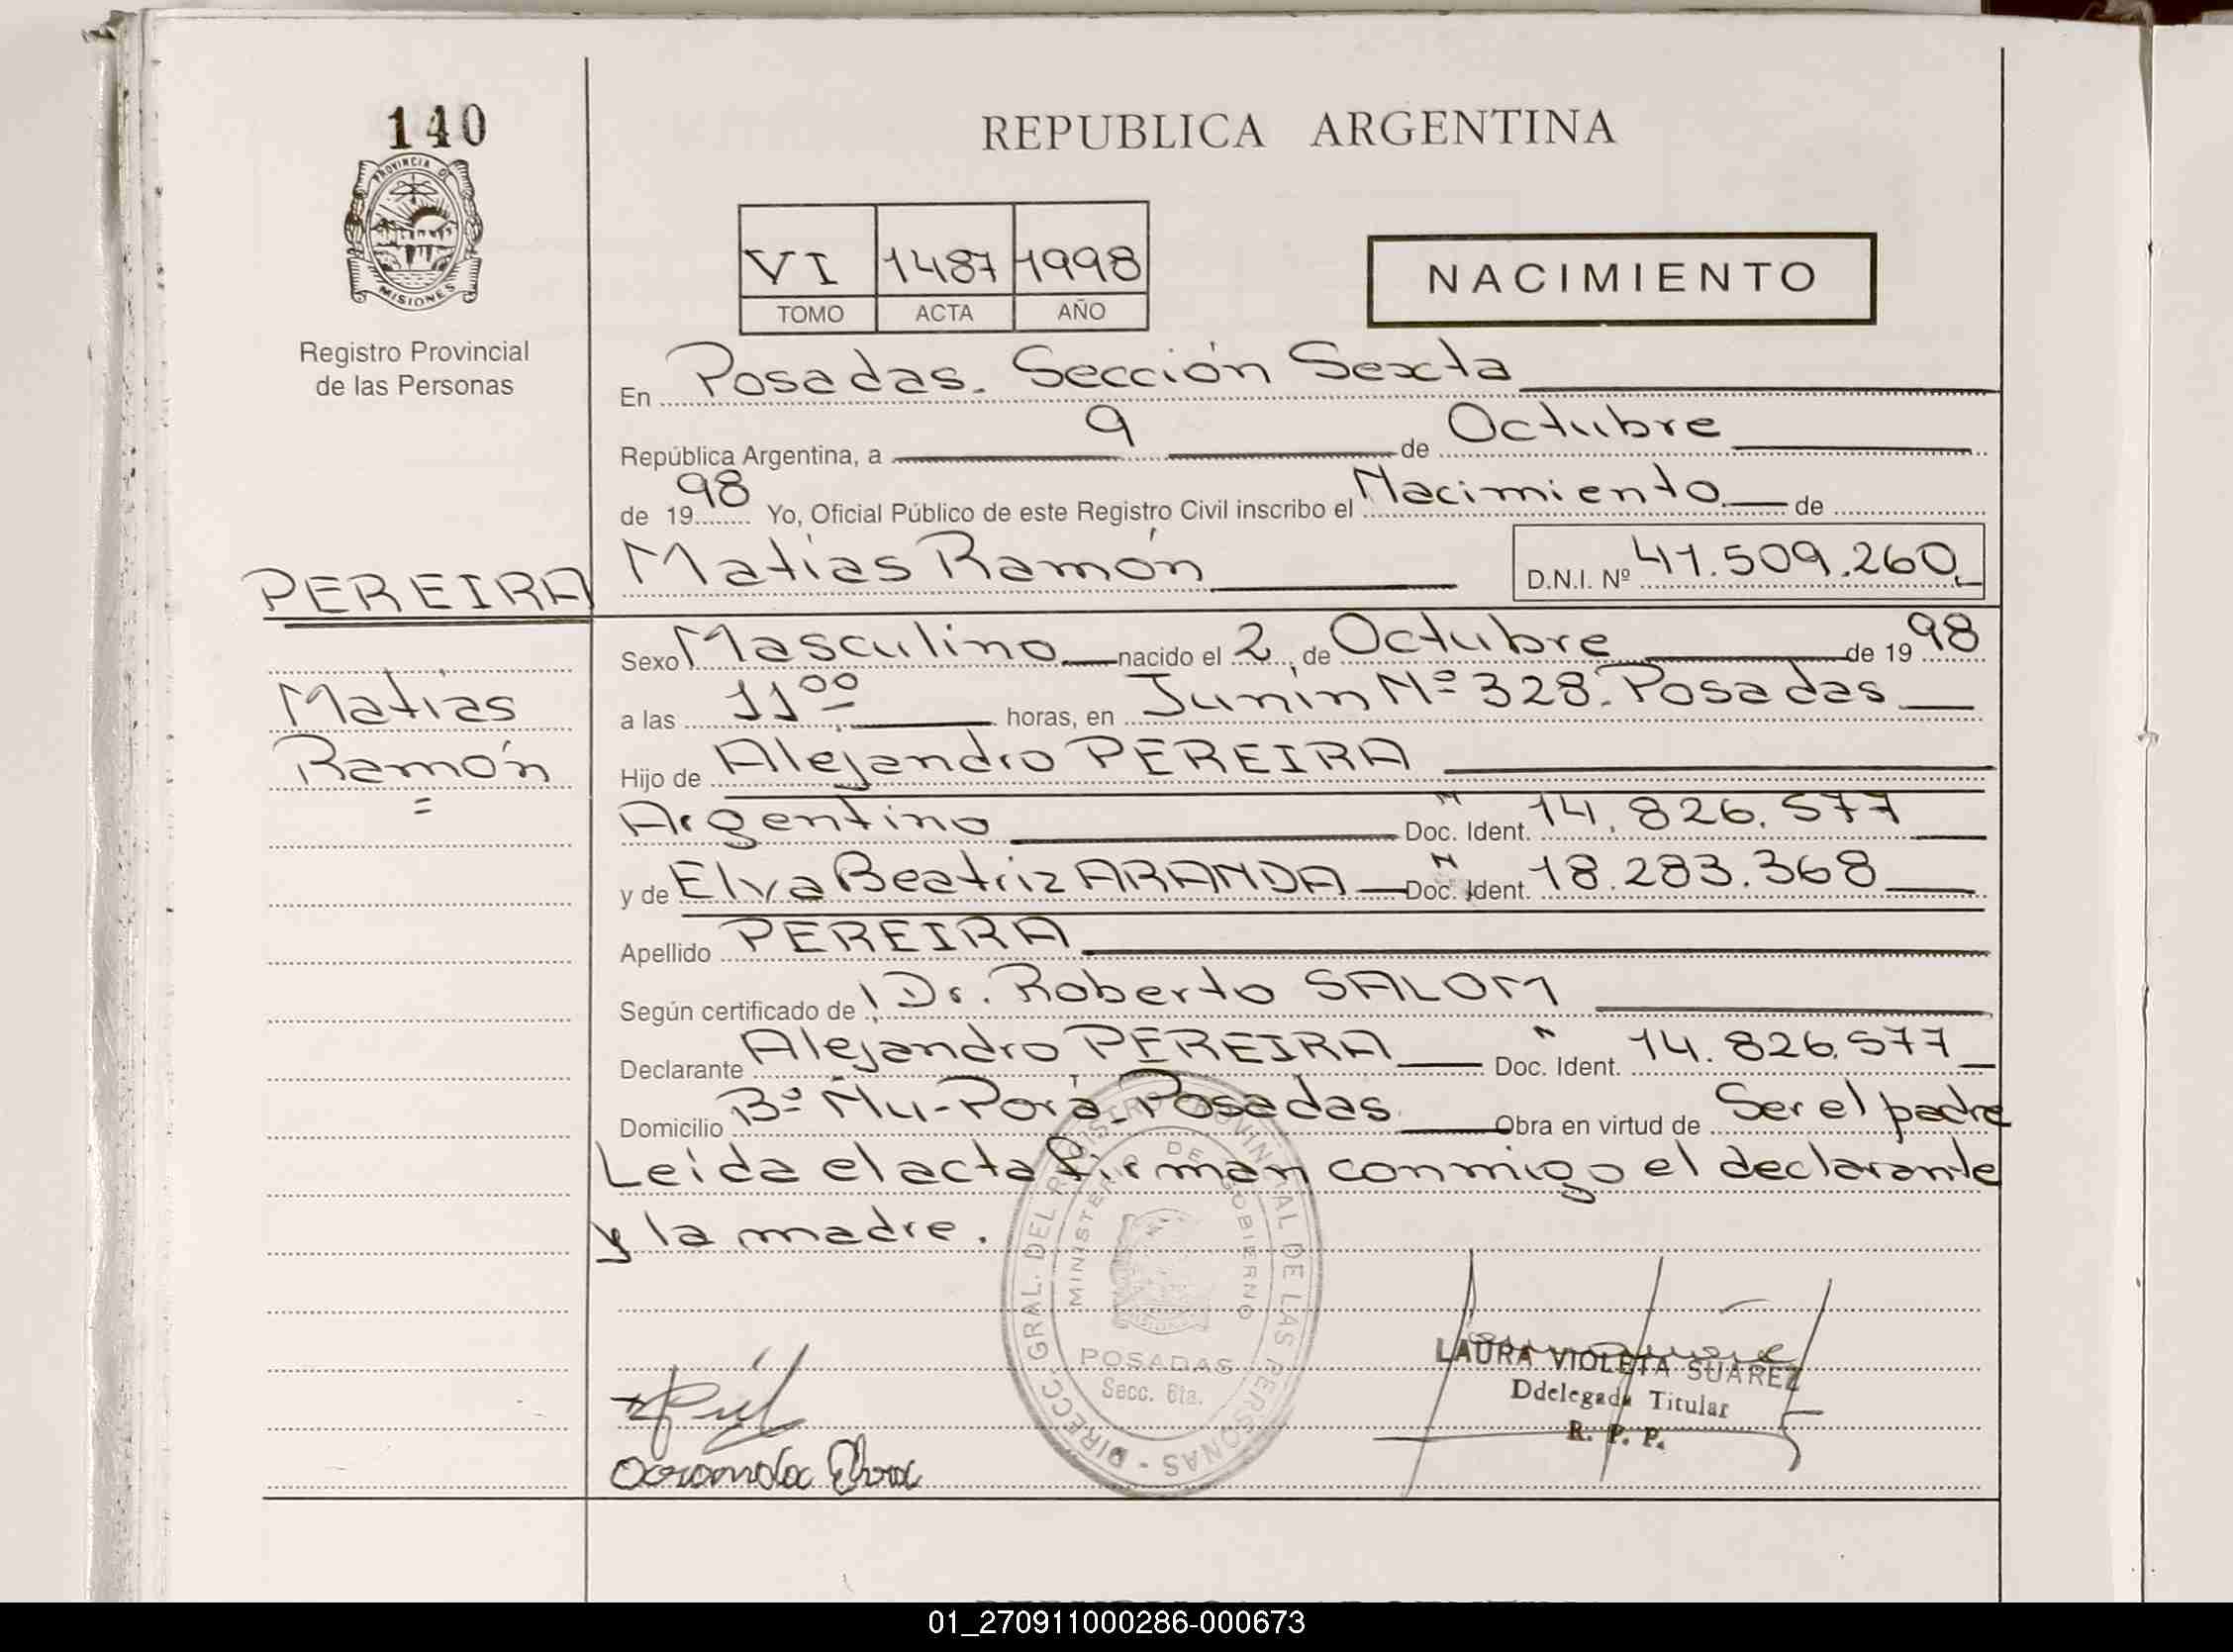 140
PROVINCIA DE
MISIONES
Registro Provincial
de las Personas
REPUBLICA ARGENTINA
VI 1487 1998
TOMO ACTA AÑO
NACIMIENTO
En Posadas. Sección Sexta
República Argentina, a 9 de Octubre
de 1998 Yo, Oficial Público de este Registro Civil inscribo el Nacimiento de
PEREIRA Matias Ramón D.N.I. Nº 41.509.260
Sexo Masculino nacido el 2 de Octubre de 1998
Matias
Ramón
a las 11 00 horas, en Junin Nº 328. Posadas
Hijo de Alejandro PEREIRA
Argentino Doc. Ident. 14.826.577
y de Elva Beatriz ARANDA Doc. Ident. 18.283.368
Apellido PEREIRA
Según certificado de Dr. Roberto SALOM
Declarante Alejandro PEREIRA Doc. Ident. 14.826.577
Domicilio Bº Ñu-Porá Posadas Obra en virtud de Ser el padre
Leída el acta firman conmigo el declarante
y la madre.
DIRECC. GRAL. DEL REGISTRO PROVINCIAL DE LAS PERSONAS
MINISTERIO DE GOBIERNO
MISIONES
POSADAS
Secc. 6ta.
LAURA VIOLETA SUAREZ
Ddelegada Titular
R. P. P.
Aranda Elva
01_270911000286-000673